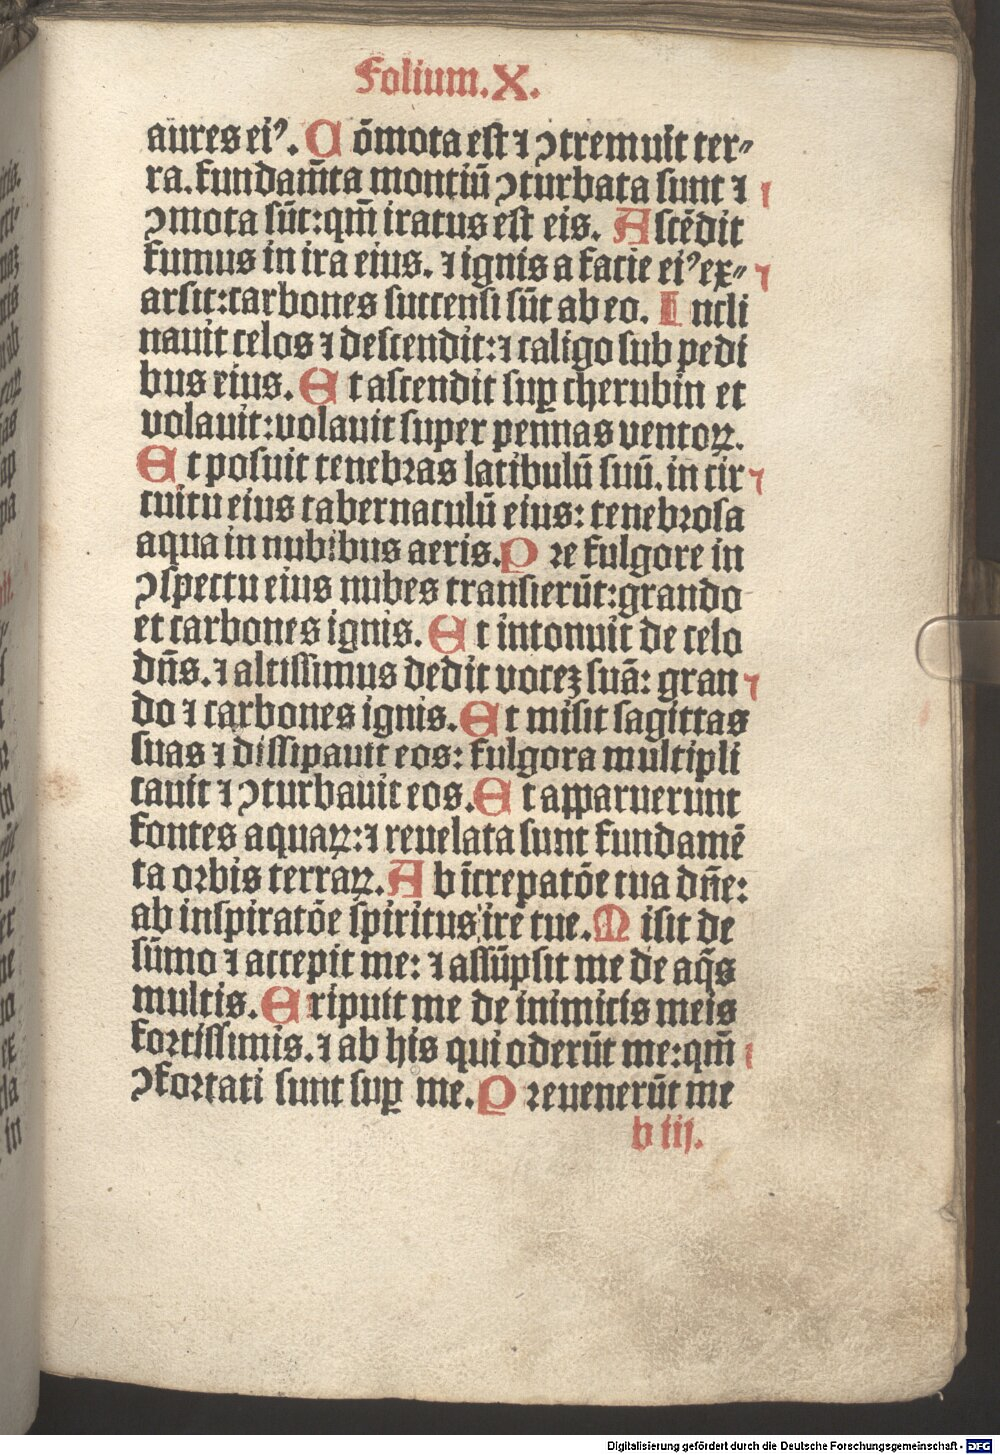 Folium.X.
aures eiꝰ. Cōmota est ⁊ ꝯtremuit ter⸗
ra. fundam̄ta montiū ꝯturbata sunt ⁊
ꝯmota sūt: qm̄ iratus est eis. Ascēdit
fumus in ira eius. ⁊ ignis a facie eiꝰ ex⸗
arsit: carbones succensi sūt ab eo. Incli
nauit celos ⁊ descendit: ⁊ caligo sub pedi
bus eius. Et ascendit suꝑ cherubin et
volauit: volauit super pennas ventoꝝ.
Et posuit tenebras latibulū suū. in cir
cuitu eius tabernaculū eius: tenebrosa
aqua in nubibus aeris. Pre fulgore in
ꝯspectu eius nubes transierūt: grando
et carbones ignis. Et intonuit de celo
dn̄s. ⁊ altissimus dedit vocez suā: gran
do ⁊ carbones ignis. Et misit sagittas
suas ⁊ dissipauit eos: fulgora multipli
cauit ⁊ ꝯturbauit eos. Et apparuerunt
fontes aquaꝝ: ⁊ reuelata sunt fundamē
ta orbis terraꝝ. Ab īcrepatōe tua dn̄e:
ab inspiratōe spiritus ire tue. Misit de
sūmo ⁊ accepit me: ⁊ assūpsit me de aq̄s
multis. Eripuit me de inimicis meis
fortissimis. ⁊ ab his qui oderūt me: qm̄
ꝯfortati sunt suꝑ me. Preuenerūt me
b iij.
Digitalisierung gefördert durch die Deutsche Forschungsgemeinschaft - DFG